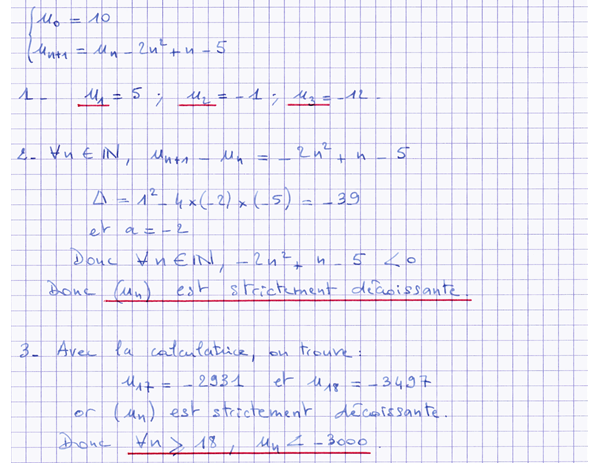 { u₀ = 10
u_{n+1} = u_n - 2n² + n - 5
1- u₁ = 5 ; u₂ = -1 ; u₃ = -12.
2- ∀n ∈ IN, u_{n+1} - u_n = -2n² + n - 5
Δ = 1² - 4×(-2)×(-5) = -39
et a = -2
Donc ∀n ∈ IN, -2n² + n - 5 < 0
Donc (u_n) est strictement décroissante.
3- Avec la calculatrice, on trouve :
u₁₇ = -2931 et u₁₈ = -3497
or (u_n) est strictement décroissante.
Donc ∀n ⩾ 18, u_n < -3000.